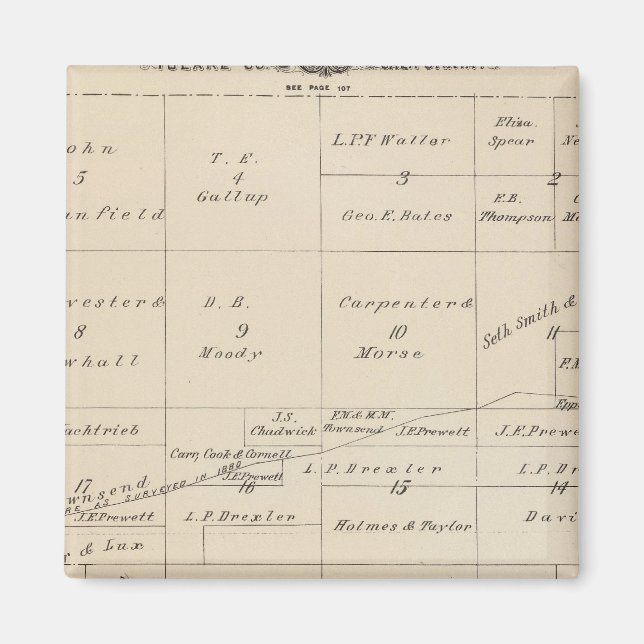 TULARE CO. CALIFORNIA.
SEE PAGE 107
ohn
5
anfield
T. E.
4
Gallup
L.P.F Waller
3
Geo. E. Bates
Eliza.
Spear
Ne
2
E.B.
Thompson
C
Mo
vester &
8
whall
D. B.
9
Moody
Carpenter &
10
Morse
Seth Smith &
11
F.M
Epp
achtrieb
J.S.
Chadwick
F.M. & H.M.
Townsend
J.E.Prewett
J.E.Prewe
Carr, Cook & Cornell
17
wnsend
RE AS SURVEYED IN 1880
J.E.Prewett
J.E.Prewett
16
L. P. Drexler
L. P. Drexler
15
Holmes & Taylor
L.P. Dr
14
Davi
r & Lux